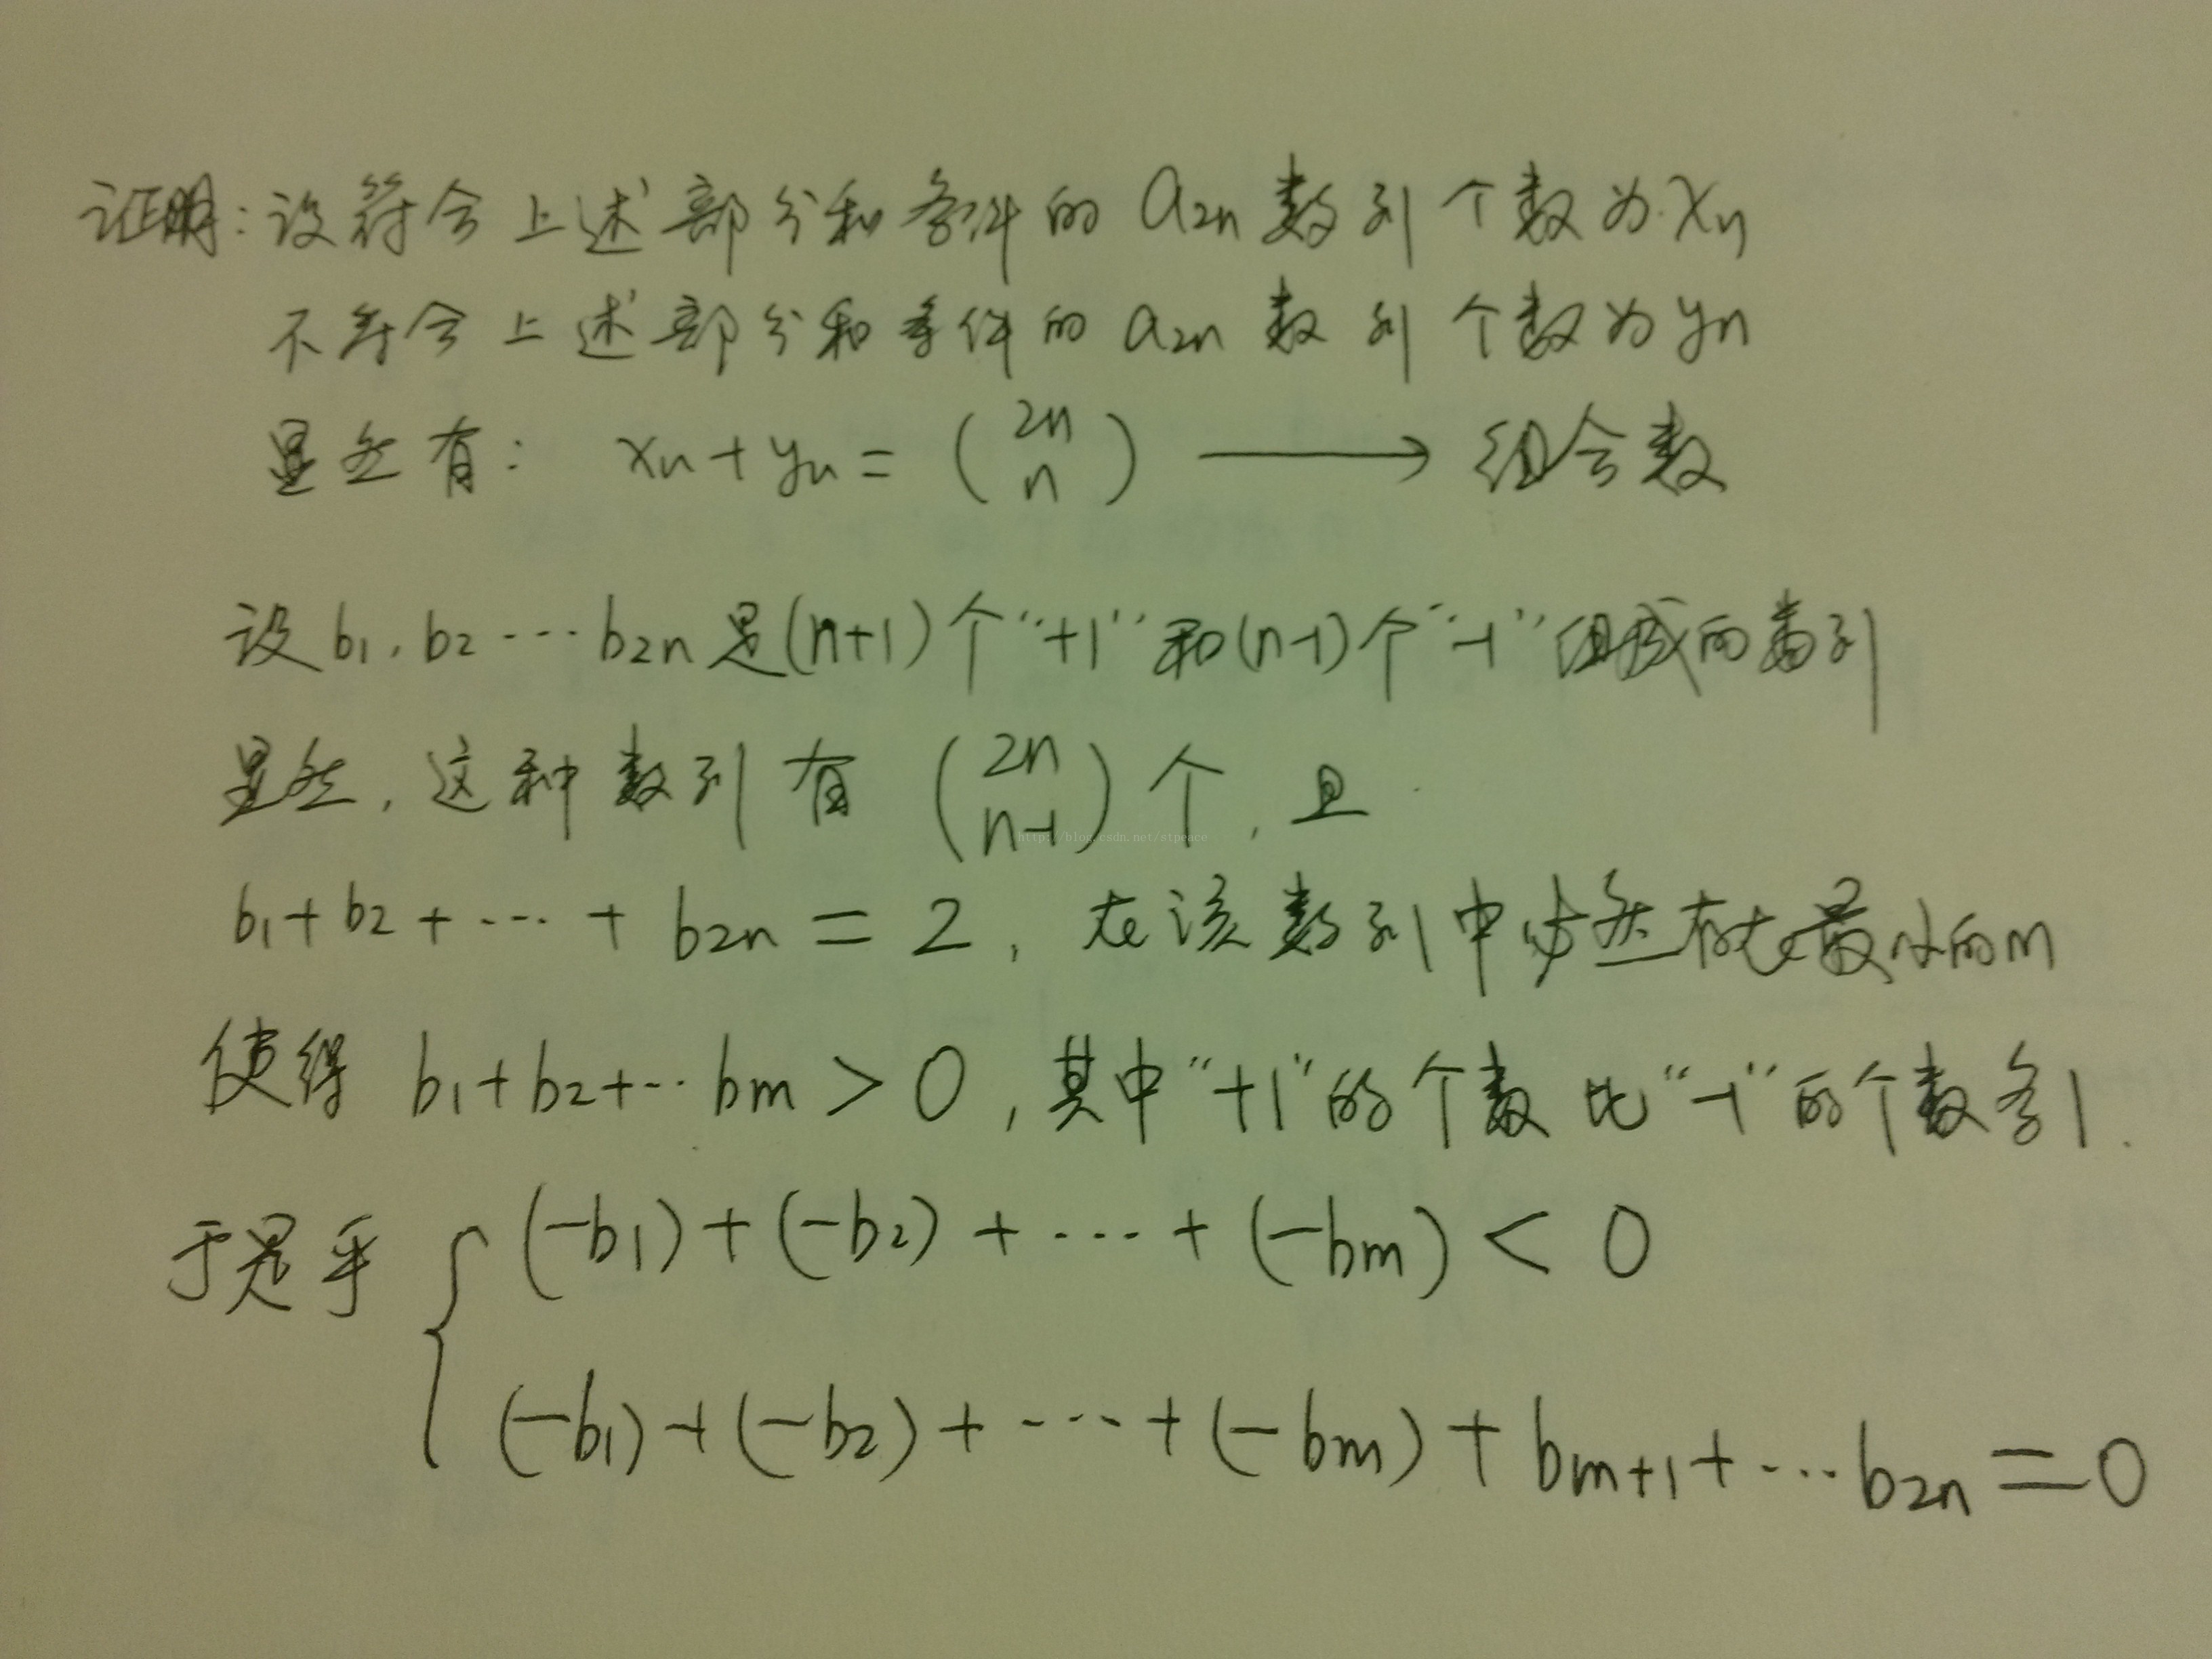 证明:设符合上述部分和条件的 a2n 数列个数为 xn
不符合上述部分和条件的 a2n 数列个数为 yn
显然有: xn + yn = (2n n) ⟶ 组合数
设 b1, b2 ··· b2n 是(n+1)个“+1”和(n-1)个“-1”组成的数列
显然, 这种数列有 (2n n-1) 个, 且
http://blog.csdn.net/stpeace
b1 + b2 + ··· + b2n = 2, 在该数列中必然存在最小的m
使得 b1 + b2 + ··· bm > 0, 其中“+1”的个数比“-1”的个数多1.
于是乎 { (-b1) + (-b2) + ··· + (-bm) < 0
(-b1) + (-b2) + ··· + (-bm) + bm+1 + ··· b2n = 0